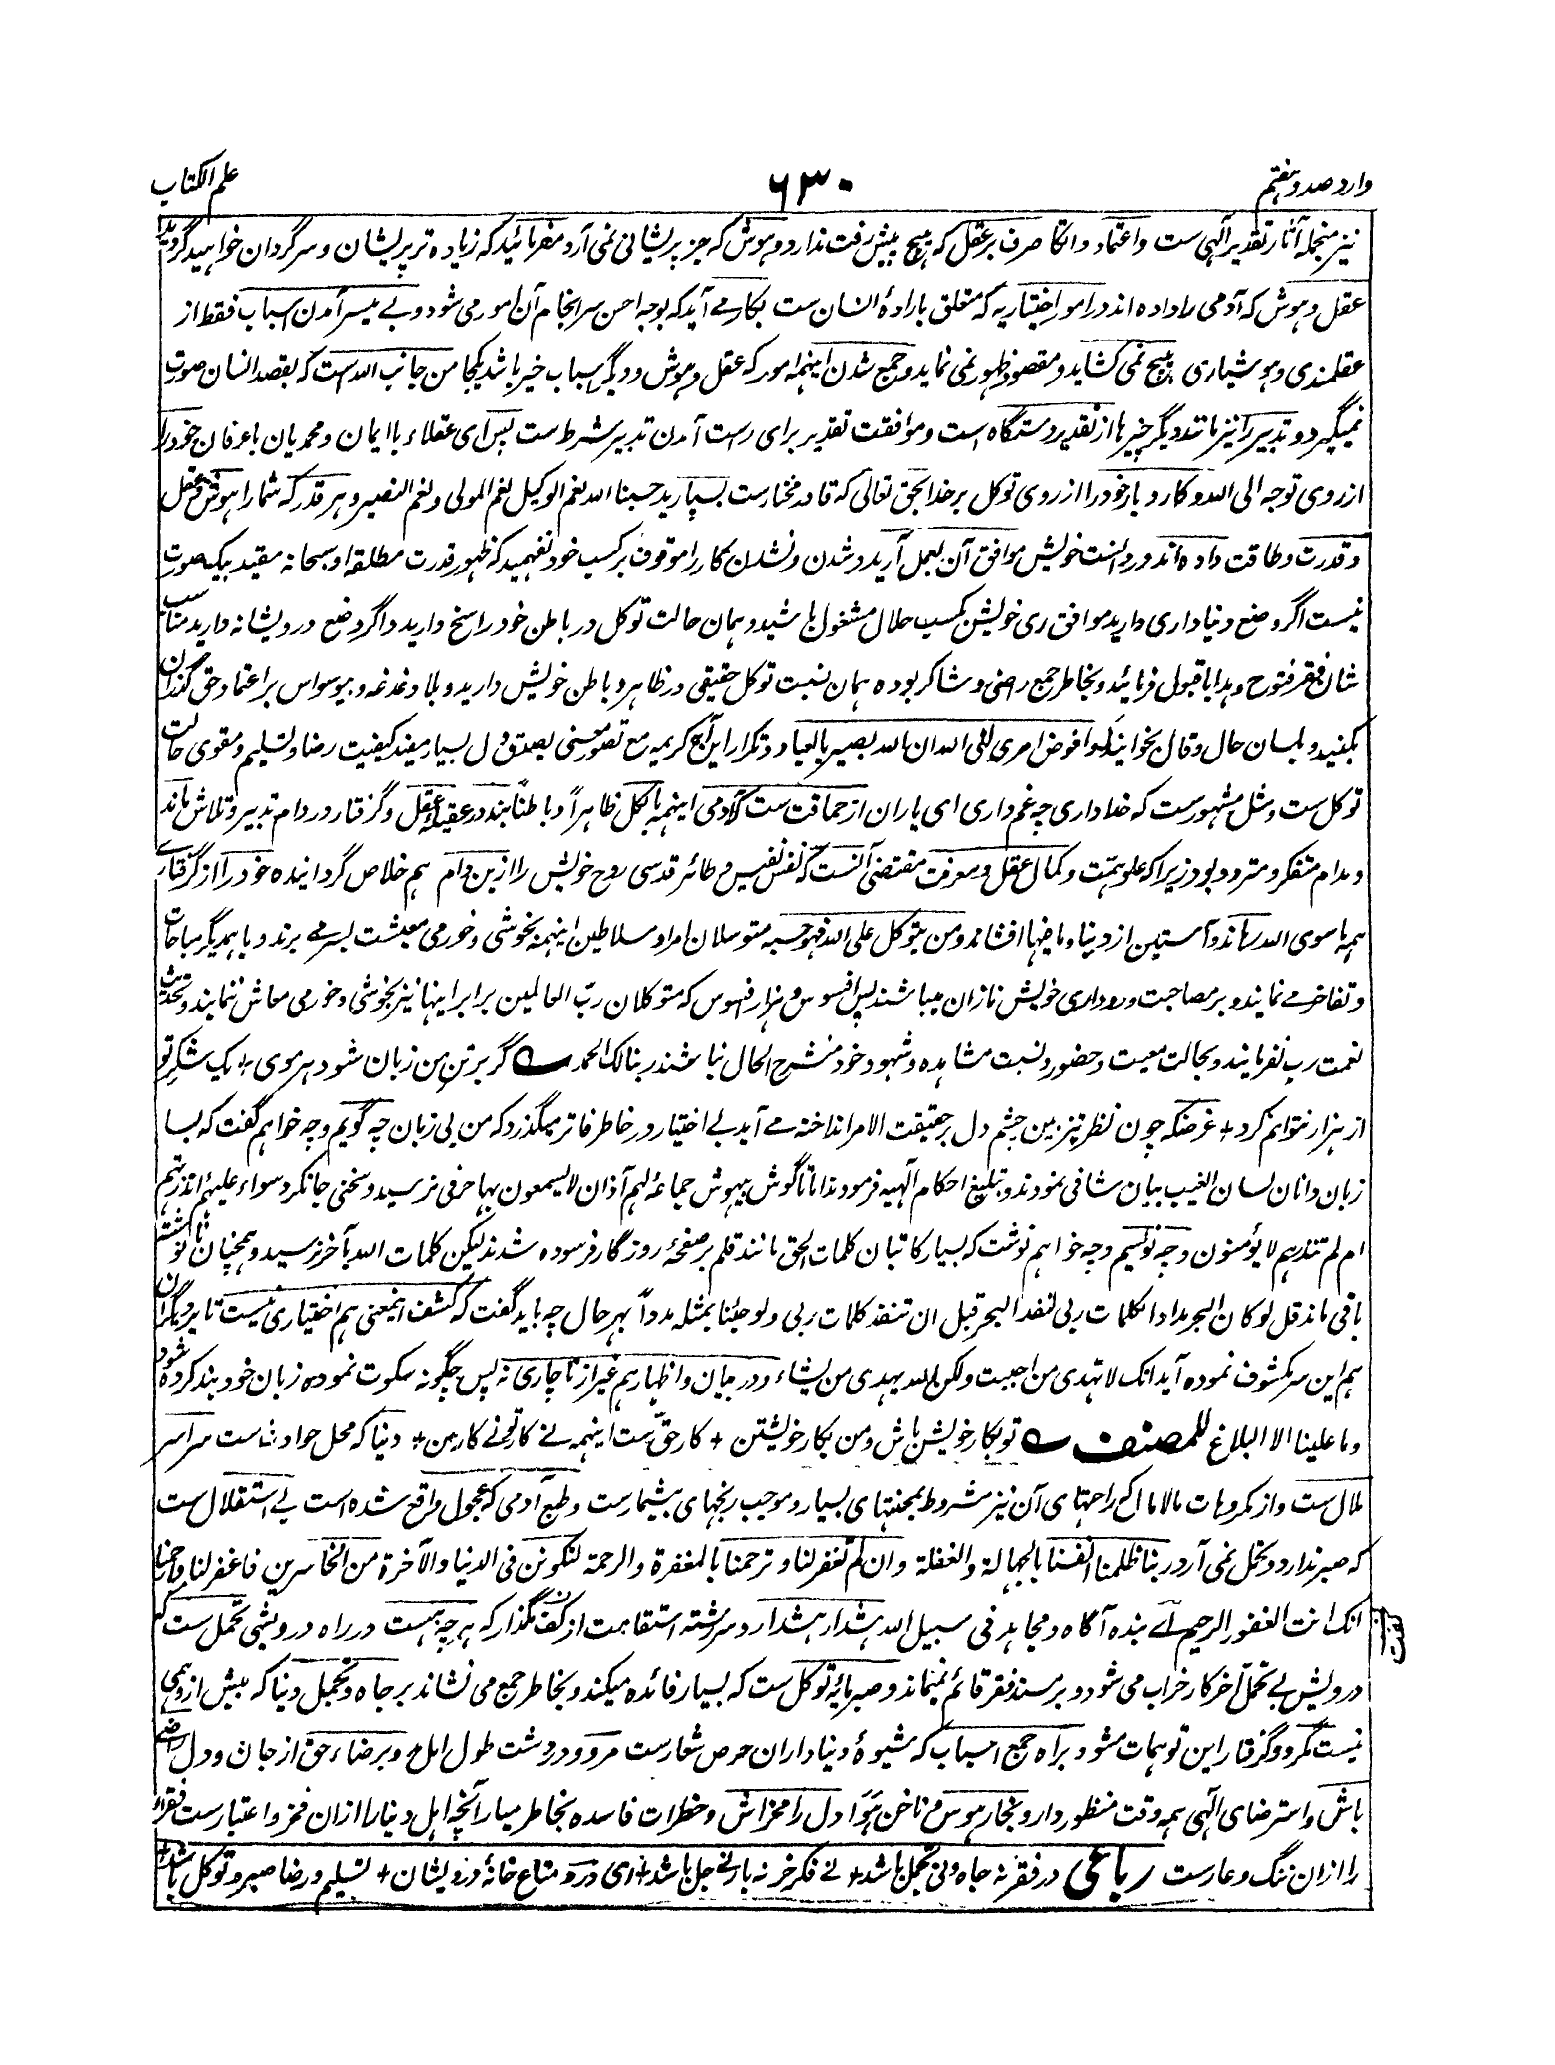 وارد صد و هفتم ۶۳۰ علم الکتاب
نیز منجملهٔ آثار تقدیر آلهی ست و اعتماد و اتکا صرف بر عقل که هیچ پیش رفت ندارد و هوش که جز پریشانی نمی آرد مفرمائید که زیاده تر پریشان و سرگردان خواهید گردید
عقل و هوش که آدمی را داده اند در امور اختیاریه که متعلق بارادهٔ انسان ست بکار مے آید که بوجه احسن سرانجام آن امور می شود و بے میسر آمدن اسباب فقط از
عقلمندی و هوشیاری هیچ نمی کشاید و مقصود ظهور نمی نماید و جمع شدن اینهمه امور که عقل و هوش و دیگر اسباب خیر باشد یکجا من جانب الله است که بقصد انسان صورت
نمیگیرد و تدبیر را نیز مانند دیگر چیزها از تقدیر دستگاه است و موافقت تقدیر برای راست آمدن تدبیر شرط ست پس ای عقلاء با ایمان و محمدیان با عرفان خود را
از روی توجه الی الله و کار و بار خود را از روی توکل بر خدا بحق تعالی که قادر مختارست بسپارید حسبنا الله نعم الوکیل نعم المولی و نعم النصیر و هر قدر که شما را هوش و عقل
و قدرت و طاقت داده اند در دانست خویش موافق آن بعمل آرید و شدن و نشدن کار را موقوف بر کسب خود نفهمید که ظهور قدرت مطلقه او سبحانه مقید بیک صورت
نیست اگر وضع دنیاداری دارید موافق ری خویش بکسب حلال مشغول باشید و همان حالت توکل در باطن خود راسخ دارید و اگر وضع درویشانه دارید مناسب
شان فقر فتوح و هدایا قبول فرمائید و بخاطر جمع راضی و شاکر بوده همان نسبت توکل حقیقی در ظاهر و باطن خویش دارید و بلا دغدغه و بیوسواس بر اعتماد حق گذران
بکنید و بلسان حال و قال بخوانید که و افوض امری الی الله ان الله بصیر بالعباد و تکرار این آیهٔ کریمه مع تصور معنی بصدق دل بسیار مفید کیفیت رضا و تسلیم و مقوی حالت
توکل ست و مثل مشهورست که خدا داری چه غم داری ای یاران از حماقت ست که آدمی اینهمه بالکل ظاهراً و باطناً بند در عقیلهٔ عقل و گرفتار در دام تدبیر و تلاش ماند
و مدام متفکر و متردد بود زیرا که علو همت و کمال عقل و معرفت مقتضی آنست که نفس نفیس و طائر قدسی روح خویش را ازین دام هم خلاص گردانیده خود را از گرفتاری
همه ما سوی الله رهاند و آستین از دنیا و ما فیها افشاند و من یتوکل علی الله فهو حسبه متوسلان امرا و سلاطین اینهمه بخوشی و خورمی معیشت بسر مے برند و با همدیگر مباحات
و تفاخر مے نمایند و بر مصاحبت و روداری خویش نازان میباشند پس افسوس و هزار افسوس که متوکلان رب العالمین برابر اینها نیز بخوشی و خورمی معاش ننمایند و تحدیث
نعمت رب نفرمایند و بحالت معیت و حضور و نسبت مشاهده و شهود خود منشرح الحال نباشند ربنا لک الحمد ؎ گر برتن من زبان شود هر موی + یک شکر تو
از هزار نتوانم کرد + غرضکه چون نظر تیزبین چشم دل بر حقیقت الامر انداخته مے آید بے اختیار در خاطر فاتر میگذرد که من بی زبان چه گویم و چه خواهم گفت که بسا
زبان دانان لسان الغیب بیان شافی نمودند و تبلیغ احکام آلهیه فرمودند اما تا گوش بیهوش جماعهٔ لهم آذان لا یسمعون بها حرفی نرسید و سخنی جا نکرد سواء علیهم انذرتهم
ام لم تنذرهم لا یؤمنون و چه نویسم و چه خواهم نوشت که بسیار کاتبان کلمات الحق مانند قلم بر صفحهٔ روزگار فرسوده شدند لیکن کلمات الله بآخر نرسید و همچنان نا نوشته
باقی ماند قل لو کان البحر مدادا لکلمات ربی لنفد البحر قبل ان تنفد کلمات ربی و لو جئنا بمثله مدداً بهر حال چه باید گفت که کشف اینمعنی هم اختیاری نیست تا بر دیگران
هم این سر مکشوف نموده آید انک لا تهدی من احببت و لکن الله یهدی من یشاء و در بیان و اظهار هم غیر از ناچاری نه پس چگونه سکوت نموده زبان خود بند کرده شود
و ما علینا الا البلاغ للمصنف ؎ تو بکار خویش باش و من بکار خویشتن + کار حق ست اینهمه نے کار تو نے کار من + دنیا که محل حوادث ست سراسر
ملال ست و از مکروهات مالامال که راحتهای آن نیز مشروط بمحنتهای بسیار و موجب رنجهای بیشمارست و طبع آدمی که عجول واقع شده است بے استقلال ست
که صبر ندارد و تحمل نمی آرد ربنا ظلمنا انفسنا بالجهالة و الغفلة و ان لم تغفر لنا و ترحمنا بالمغفرة و الرحمة لنکونن فی الدنیا و الآخرة من الخاسرین فاغفر لنا و ارحمنا
انک انت الغفور الرحیم اے بنده آگاه و مجاهد فی سبیل الله هشدار هشدار و سررشتهٔ استقامت از کف مگذار که هر چه هست در راه درویشی تحمل ست که
درویش بے تحمل آخر کار خراب می شود و بر مسند فقر قائم نمیماند و صبر مایهٔ توکل ست که بسیار فائده میکند و بخاطر جمع می نشاند بر جاه و تجمل دنیا که بیش از وهمی
نیست مگرو و گرفتار این توهمات مشو و براه جمع اسباب که شیوهٔ دنیاداران حرص شعارست مرو و در دشت طول امل و برضاء حق از جان و دل راضی
باش و استرضای آلهی همه وقت منظور دار و بخار هوس و ناخن هوا دل را مخراش و خطرات فاسده بخاطر میار آنچه اهل دنیا را ازان فخر و اعتبارست فقراء
را ازان ننگ و عارست رباعی در فقر نه جاه ونی تجمل باشد + نے فکر خر نه بار نے جل باشد + ای درد متاع خانهٔ درویشان + تسلیم و رضا صبر و توکل باشد +